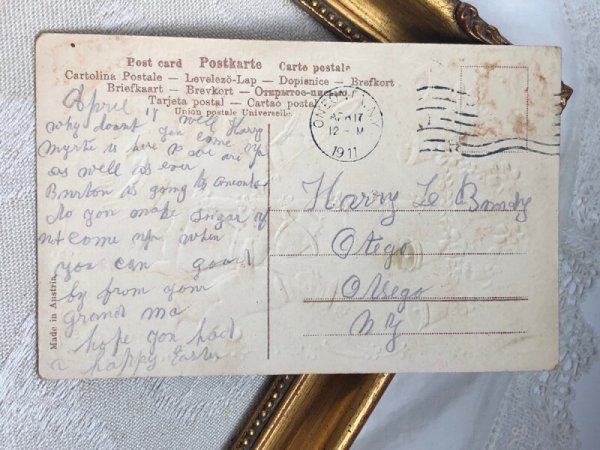 Post card Postkarte Carte postale
Cartolina Postale — Levelező-Lap — Dopisnice — Brefkort
Briefkaart — Brevkort — Открытое письмо
Tarjeta postal — Cartao postal
Union postale Universelle.
ONEONTA, N.Y.
APR 17
12 - M
1911
April 17 Well Harry
why doant you come up
Myrtie is here we are
as well as ever
Burton is going to oneonta
do you make sugar if
not come up when
you can good
by from your
grand ma
hope you had
a happy Easter
Harry Le Bundy
Otego
Otsego
NY
Made in Austria